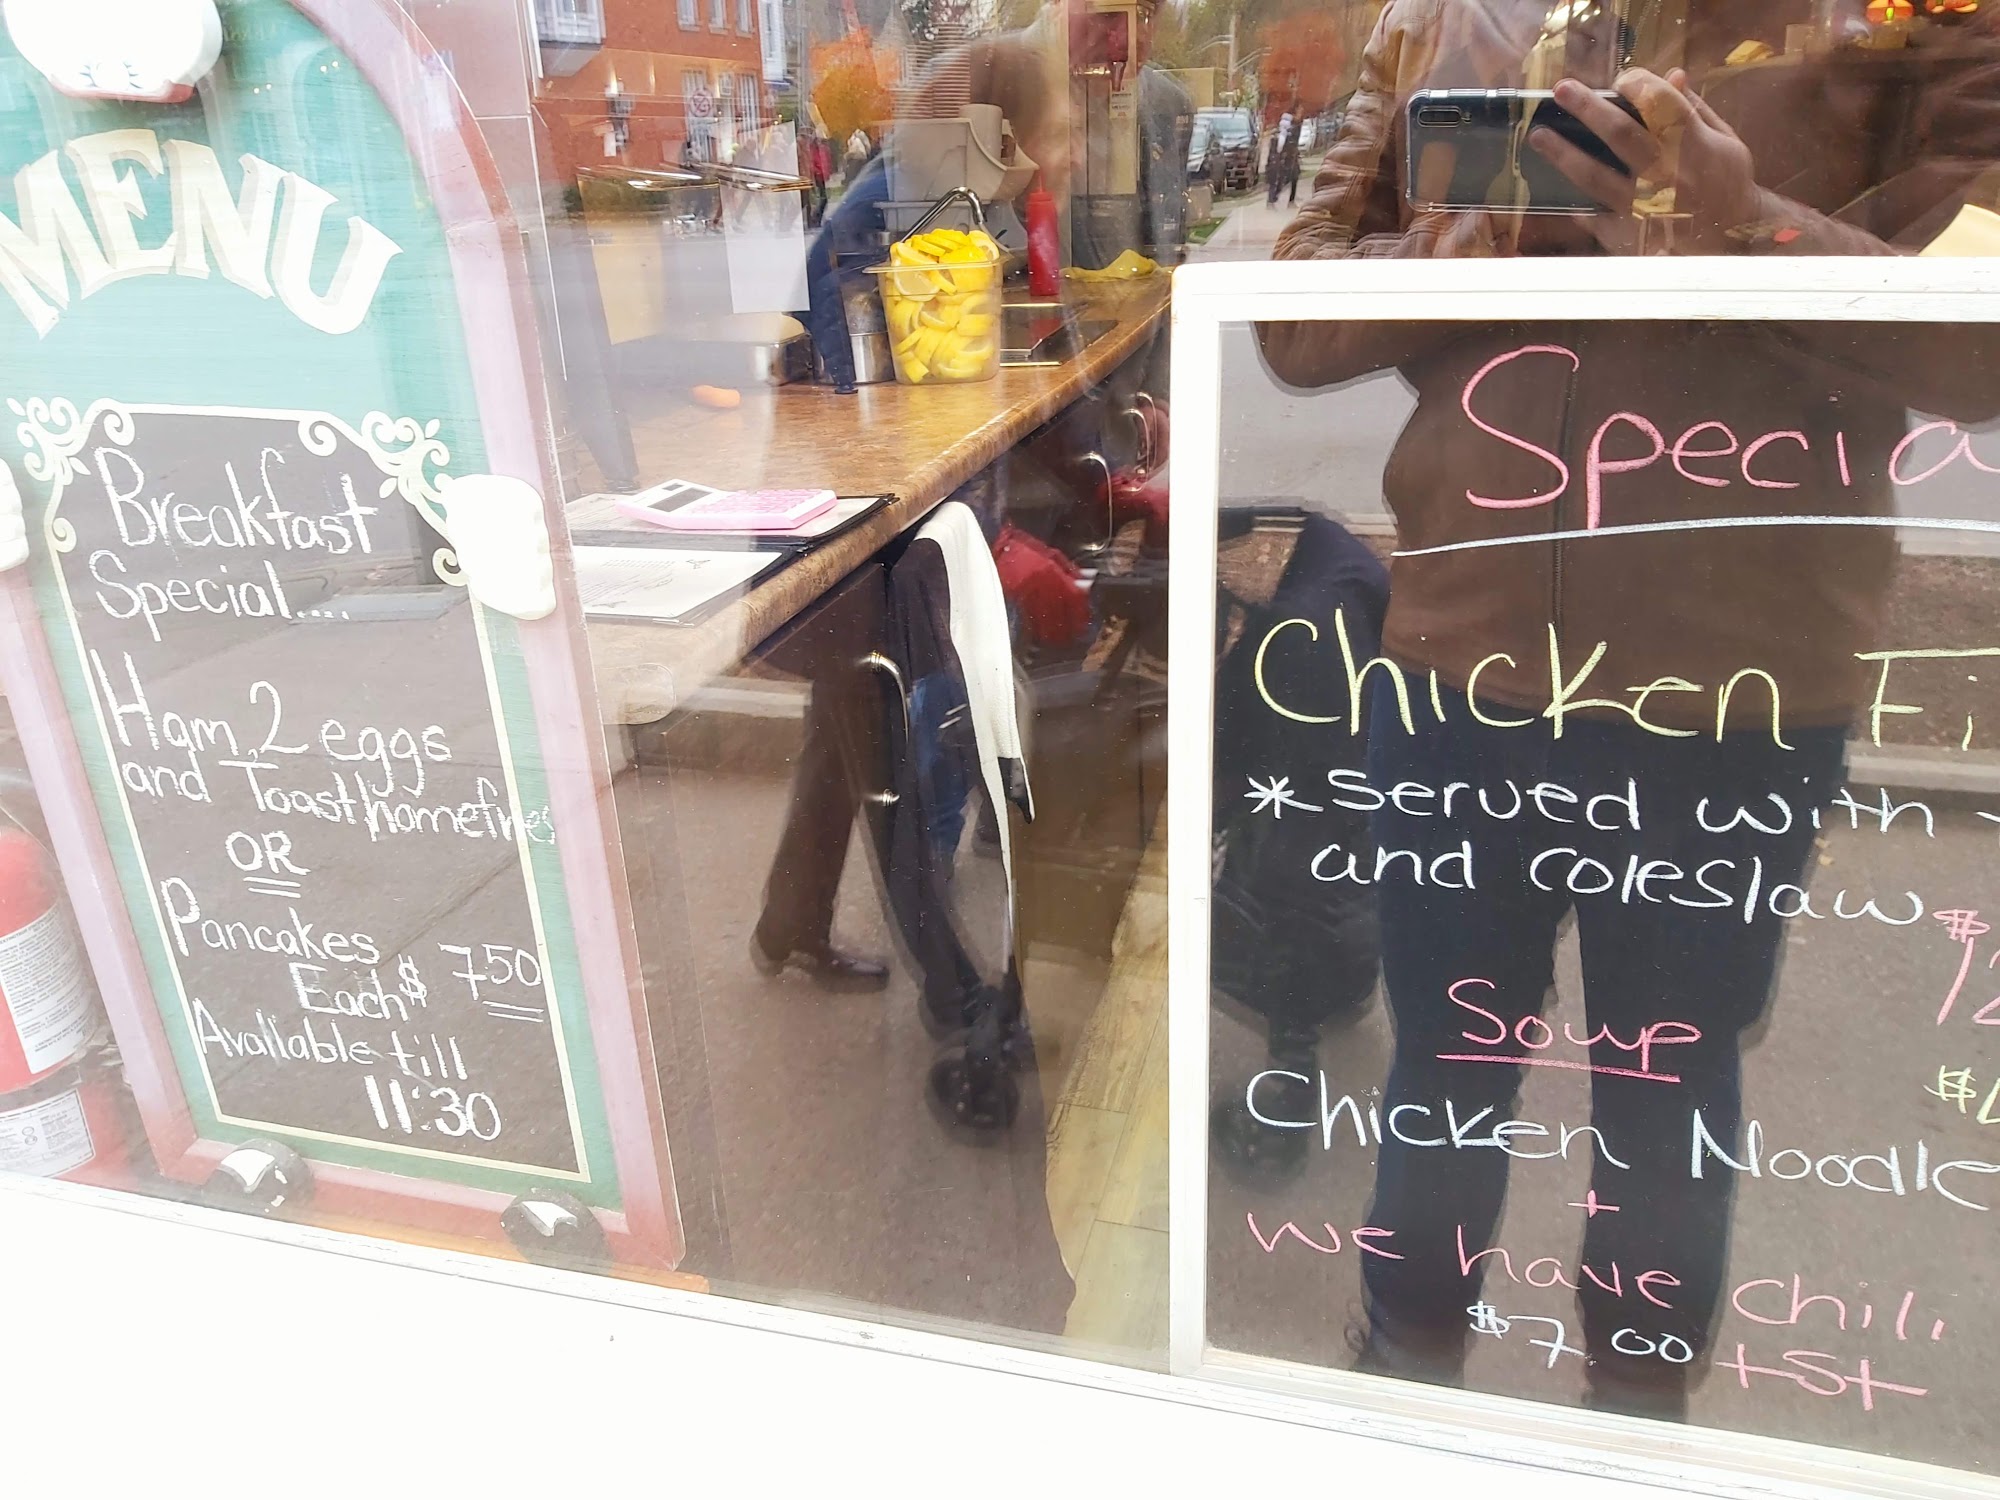 MENU
Breakfast
Special....
Ham, 2 eggs
and Toast homefries
OR
Pancakes
Each $ 7.50
Available till
11:30
Specia
Chicken Fi
* Served with
and coleslaw
$
12
Soup
$
Chicken Noodle
+
We have Chili
$7.00 + st